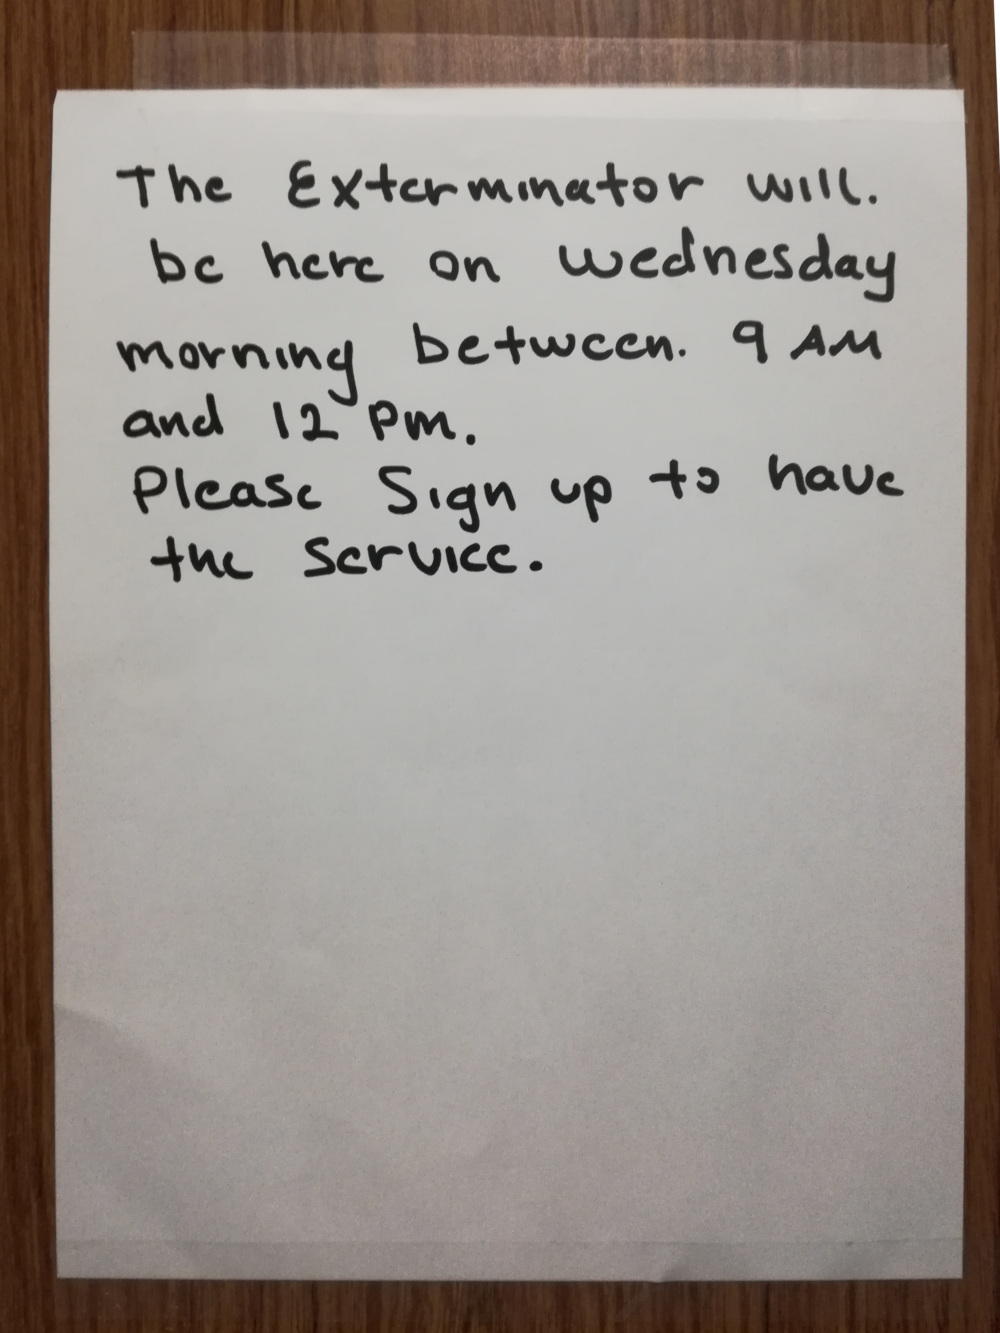 The Exterminator will.
be here on wednesday
morning between. 9 AM
and 12 Pm.
Please Sign up to have
the Service.